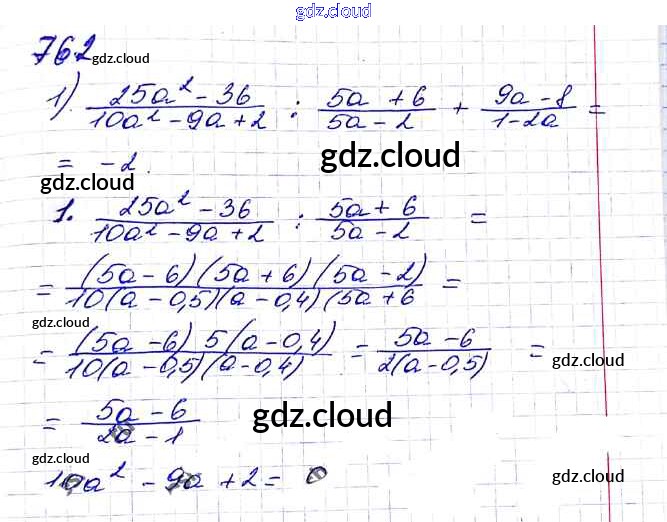 gdz.cloud
762 gdz.cloud
1) (25a² - 36)/(10a² - 9a + 2) : (5a + 6)/(5a - 2) + (9a - 8)/(1 - 2a) =
= -2.
gdz.cloud gdz.cloud
1. (25a² - 36)/(10a² - 9a + 2) : (5a + 6)/(5a - 2) =
= (5a - 6)(5a + 6)(5a - 2)/10(a - 0,5)(a - 0,4)(5a + 6 =
gdz.cloud
= (5a - 6) 5(a - 0,4)/10(a - 0,5)(a - 0,4) = (5a - 6)/2(a - 0,5) =
gdz.cloud
= (5a - 6)/(2a - 1)
gdz.cloud
gdz.cloud
10a² - 9a + 2 = 0
gdz.cloud